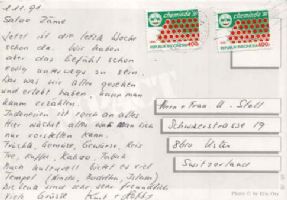 2.11.91.
Salve Zäme
Jetzt ist die letzte Woche
schon da. Wir haben
aber das Gefühl schon
ewig unterwegs zu sein.
Das was wir alles gesehen
und erlebt haben, kann man
kaum erzählen.
Indonesien ist auch alles
Hier wächst alles was man sich
nur vorstellen kann.
Früchte, Gemüse, Gewürze, Reis
Tee, Kaffee, Kakao, Tabak
Auch kulturell bietet es viel
Tempel (Hindu, Buddha, Islam)
Die Leute sind sehr sehr freundlich
Viele Grüsse Kurt +
chemindo '91
REPUBLIK INDONESIA 400r
chemindo '91
REPUBLIK INDONESIA 400r
Herr + Frau U. Stoll
Schwizerstrasse 19
8610 Uster
Switzerland
Photo © by